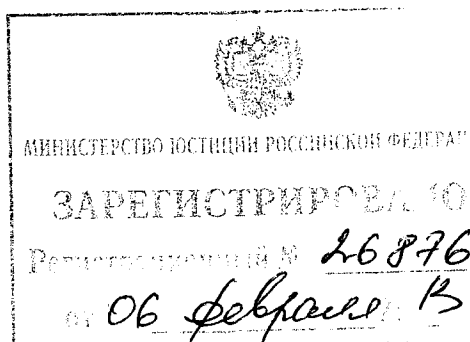 МИНИСТЕРСТВО ЮСТИЦИИ РОССИЙСКОЙ ФЕДЕРА
ЗАРЕГИСТРИРОВАНО
Регистрационный № 26876
от 06 февраля 13